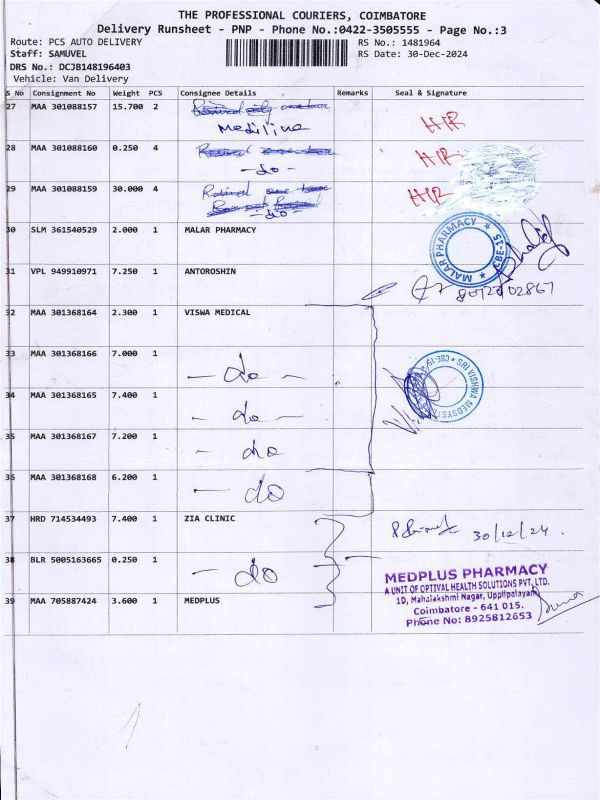 THE PROFESSIONAL COURIERS, COIMBATORE
Delivery Runsheet - PNP - Phone No.:0422-3505555 - Page No.:3
Route: PCS AUTO DELIVERY
Staff: SAMUVEL
DRS No.: DCJB148196403
Vehicle: Van Delivery
RS No.: 1481964
RS Date: 30-Dec-2024
S No Consignment No Weight PCS Consignee Details Remarks Seal & Signature
27 MAA 301088157 15.700 2
Mediline
HR
28 MAA 301088160 0.250 4
-do-
HR
29 MAA 301088159 30.000 4
-do-
HR
30 SLM 361540529 2.000 1 MALAR PHARMACY
MALAR PHARMACY ★ CBE-15 ★
31 VPL 949910971 7.250 1 ANTOROSHIN
32 MAA 301368164 2.300 1 VISWA MEDICAL
33 MAA 301368166 7.000 1
- do -
SRI VISHWA MEDSYSTEMS ★ CBE-15 ★
34 MAA 301368165 7.400 1
- do -
35 MAA 301368167 7.200 1
- do
36 MAA 301368168 6.200 1
- do
37 HRD 714534493 7.400 1 ZIA CLINIC
30/12/24.
38 BLR 5005163665 0.250 1
- do
39 MAA 705887424 3.600 1 MEDPLUS
MEDPLUS PHARMACY
A UNIT OF OPTIVAL HEALTH SOLUTIONS PVT. LTD.
1D, Mahalakshmi Nagar, Upplipalayam
Coimbatore - 641 015.
Phone No: 8925812653